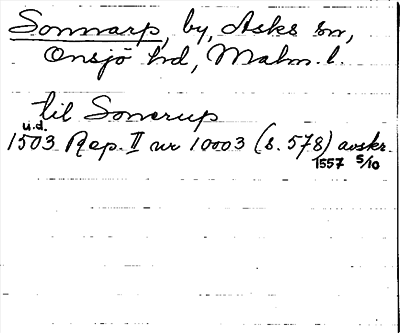 Sonnarp, by, Asks sn,
Onsjö hd, Malm. l.
til Sonerup
u.d.
1503 Rep. II nr 10003 (s. 578) avskr.
1557 5/10